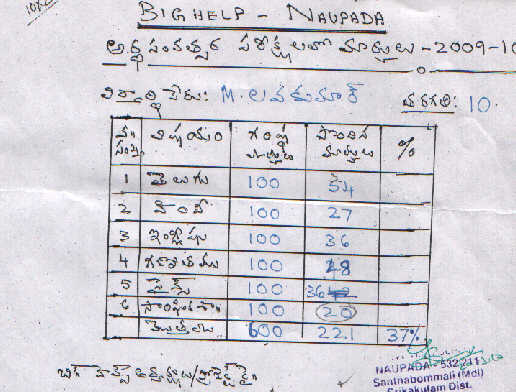 BIG HELP - NAUPADA
అర్థ సంవత్సర పరీక్షలలో మార్కులు - 2009-10
విద్యార్థి పేరు: M. లవకుమార్ తరగతి: 10.
వ. సంఖ్య విషయం గరిష్ట మార్కులు పొందిన మార్కులు %
1 తెలుగు 100 54
2 హిందీ 100 27
3 ఇంగ్లీషు 100 36
4 గణితము 100 48
5 సైన్స్ 100 36
6 సాంఘిక శా 100 20
మొత్తము 600 221 37%
NAUPADA - 532211
Santhabommali (Mdl)
Srikakulam Dist.